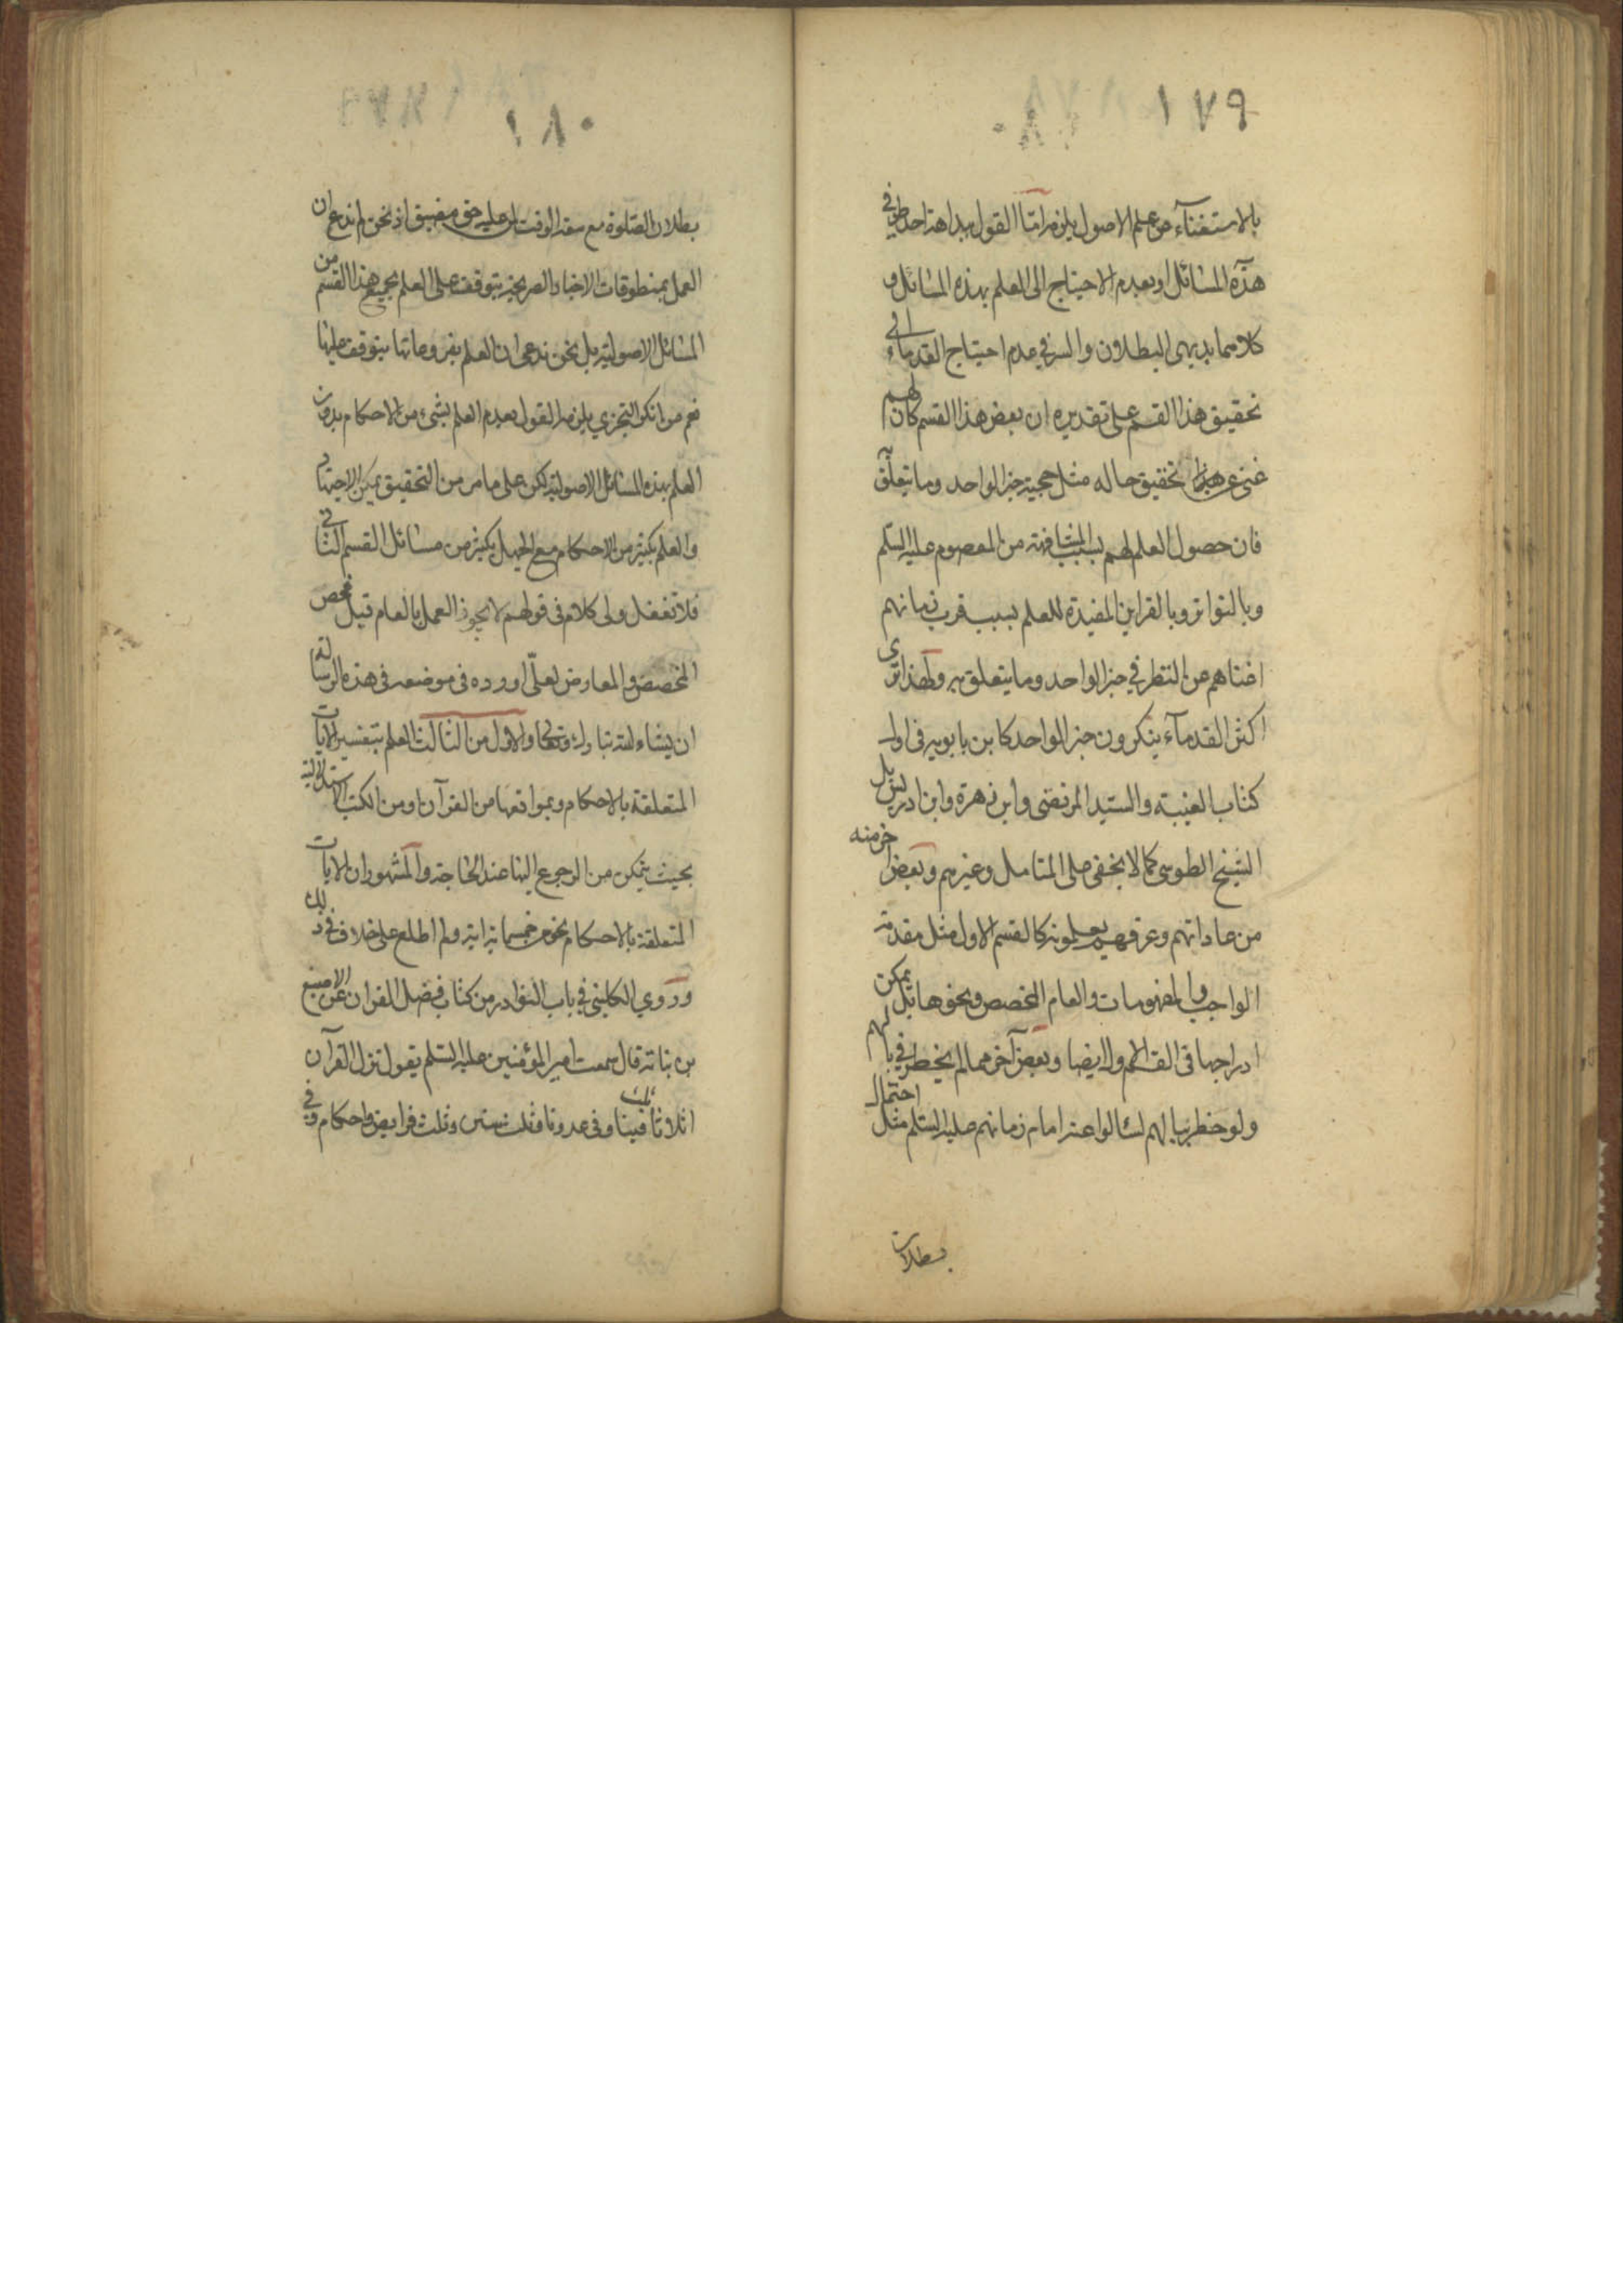 ١٧٩
بالاستغناء عن علم الاصول يلزم امّا القول ببداهة احد طرفي
هذه المسائل او بعدم الاحتياج الى العلم بهذه المسائل و
كلاهما بديهى البطلان والسر في عدم احتياج القدماء الى
تحقيق هذا القسم على تقديره ان بعض هذا القسم كان لهم
غنى عن تحقيق حاله مثل حجية خبر الواحد وما يتعلّق
فان حصول العلم لهم بسبب المشافهة من المعصوم عليه السلم
وبالتواتر وبالقراين المفيدة للعلم بسبب قرب زمانهم
اغناهم عن النظر في خبر الواحد وما يتعلق به ولهذا ترى
اكثر القدماء ينكرون خبر الواحد كابن بابويه فى اول
كتاب الغيبة والسيد المرتضى وابن زهرة وابن ادريس بل
الشيخ الطوسى كما لا يخفى على المتامل وغيرهم وبعض اخر منه
من عاداتهم وعرفهم يعلمونه كالقسم الاول مثل مقدمة
الواجب والمفهومات والعام المخصص ونحوها بل يمكن
ادراجها فى القسم الاول ايضا وبعض آخر مما لم يخطر في بالهم
ولو خطر ببالهم لسالوا عنه امام زمانهم عليه السلم مثل احتمال
بطلان
١٨٠
بطلان الصلوة مع سعة الوقت لمن عليه حق مضيق اذ نحن لم ندع ان
العمل بمنطوقات الاخبار الصريحة يتوقف على العلم بجميع هذا القسم من
المسائل الاصولية بل نحن ندعى ان العلم بفروعاتها يتوقف عليها
نعم من انكر التجزي يلزمه القول بعدم العلم بشىء من الاحكام بدون
العلم بهذه المسائل الاصولية لكن على ما مر من التحقيق يمكن الاجتهاد
والعلم بكثير من الاحكام مع الجهل بكثير من مسائل القسم الثانى
فلا تغفل ولى كلام فى قولهم لا يجوز العمل بالعام قبل فحص
المخصص والمعارض لعلّى اورده فى موضعه فى هذه الرسالة
ان يشاء الله تبارك وتعالى والاول من الثالث العلم بتفسير الايات
المتعلقة بالاحكام وبمواقعها من القرآن او من الكتب الاستدلالية
بحيث يتمكن من الرجوع اليها عند الحاجة والمشهور ان الايات
المتعلقة بالاحكام نحو من خمسماية اية ولم اطلع على خلاف فى ذلك
وروي الكلينى في باب النوادر من كتاب فضل القران عن الاصبغ
بن نباتة قال سمعت امير المؤمنين عليه السلم يقول نزل القرآن
اثلاثا ثلث فينا وفى عدونا وثلث سنن وثلث فرايض واحكام وفى